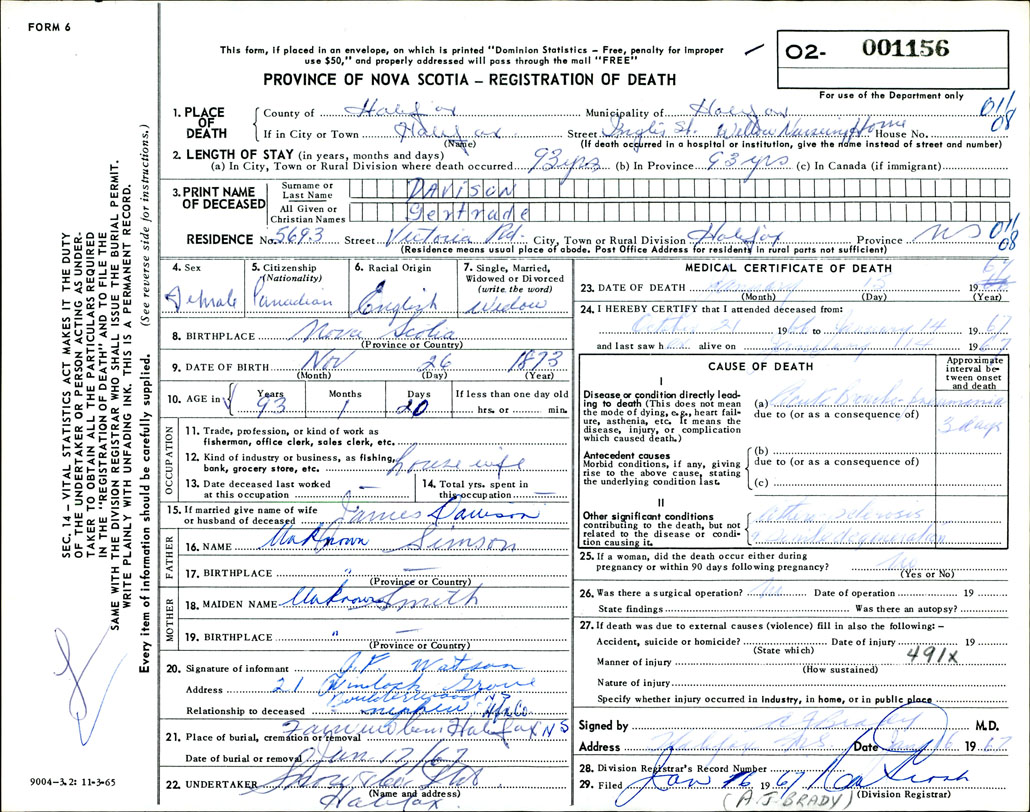 FORM 6
This form, if placed in an envelope, on which is printed "Dominion Statistics – Free, penalty for improper
use $50," and properly addressed will pass through the mail "FREE"
PROVINCE OF NOVA SCOTIA – REGISTRATION OF DEATH
O2- 001156
For use of the Department only
1. PLACE OF DEATH
County of Halifax Municipality of Halifax 011/08
If in City or Town Halifax (Name) Street Inglis St. Willow Nursing Home House No.
(If death occurred in a hospital or institution, give the name instead of street and number)
2. LENGTH OF STAY (in years, months and days)
(a) In City, Town or Rural Division where death occurred 93 yrs (b) In Province 93 yrs (c) In Canada (if immigrant)
3. PRINT NAME OF DECEASED
Surname or Last Name DAVISON
All Given or Christian Names Gertrude
RESIDENCE No. 5693 Street Victoria Rd. City, Town or Rural Division Halifax Province NS 011/08
(Residence means usual place of abode. Post Office Address for residents in rural parts not sufficient)
4. Sex Female
5. Citizenship (Nationality) Canadian
6. Racial Origin English
7. Single, Married, Widowed or Divorced (write the word) Widow
8. BIRTHPLACE Nova Scotia
(Province or Country)
9. DATE OF BIRTH Nov 26 1873
(Month) (Day) (Year)
10. AGE in Years 93 Months 1 Days 20 If less than one day old hrs. or min.
OCCUPATION
11. Trade, profession, or kind of work as
fisherman, office clerk, sales clerk, etc.
12. Kind of industry or business, as fishing,
bank, grocery store, etc. housewife
13. Date deceased last worked
at this occupation —
14. Total yrs. spent in
this occupation —
15. If married give name of wife
or husband of deceased James Davison
FATHER
16. NAME Unknown Simson
17. BIRTHPLACE " —
(Province or Country)
MOTHER
18. MAIDEN NAME Unknown Smith
19. BIRTHPLACE " —
(Province or Country)
20. Signature of informant Watson
Address 21 Grove
Relationship to deceased nephew Hfx Co
21. Place of burial, cremation or removal Fairview Cem Halifax NS
Date of burial or removal Jan 17/67
22. UNDERTAKER
(Name and address)
Halifax
MEDICAL CERTIFICATE OF DEATH
23. DATE OF DEATH January 15 1967
(Month) (Day) (Year)
24. I HEREBY CERTIFY that I attended deceased from:
October 21 1966 to January 14 1967
and last saw her alive on January 14 1967
CAUSE OF DEATH
Approximate interval between onset and death
I
Disease or condition directly leading to death (This does not mean the mode of dying, e.g., heart failure, asthenia, etc. It means the disease, injury, or complication which caused death.)
(a) Acute Broncho-pneumonia
due to (or as a consequence of)
3 days
Antecedent causes
Morbid conditions, if any, giving rise to the above cause, stating the underlying condition last.
(b)
due to (or as a consequence of)
(c)
II
Other significant conditions
contributing to the death, but not related to the disease or condition causing it.
Atherosclerosis
degeneration
25. If a woman, did the death occur either during
pregnancy or within 90 days following pregnancy? No
(Yes or No)
26. Was there a surgical operation? No Date of operation 19
State findings Was there an autopsy?
27. If death was due to external causes (violence) fill in also the following: –
Accident, suicide or homicide? Date of injury 19
(State which)
491x
Manner of injury
(How sustained)
Nature of injury
Specify whether injury occurred in Industry, in home, or in public place
Signed by A J Brady M.D.
Address Halifax N.S. Date Jan 16 1967
28. Division Registrar's Record Number
29. Filed Jan 16 1967
(Division Registrar)
(A. J. BRADY)
SEC. 14 – VITAL STATISTICS ACT MAKES IT THE DUTY
OF THE UNDERTAKER OR PERSON ACTING AS UNDER-
TAKER TO OBTAIN ALL THE PARTICULARS REQUIRED
IN THE "REGISTRATION OF DEATH" AND TO FILE THE
SAME WITH THE DIVISION REGISTRAR WHO SHALL ISSUE THE BURIAL PERMIT.
WRITE PLAINLY WITH UNFADING INK. THIS IS A PERMANENT RECORD.
Every item of information should be carefully supplied. (See reverse side for instructions.)
9004-3.2: 11-3-65